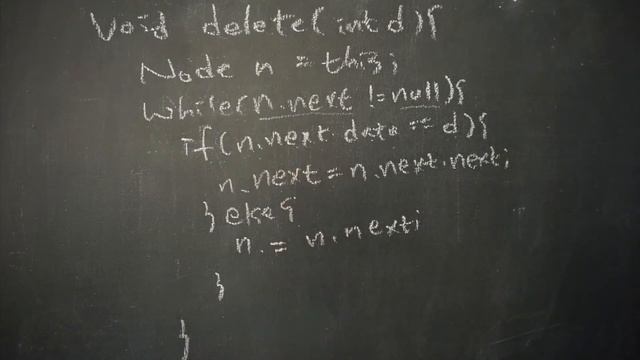 void delete(int d){
Node n = this;
while(n.next != null){
if(n.next.data == d){
n.next = n.next.next;
} else {
n = n.next;
}
}